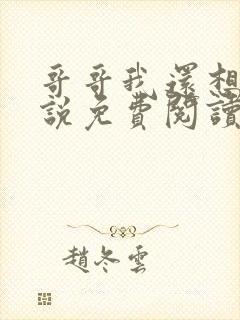 哥哥我還想
説免費閱讀
趙冬雲